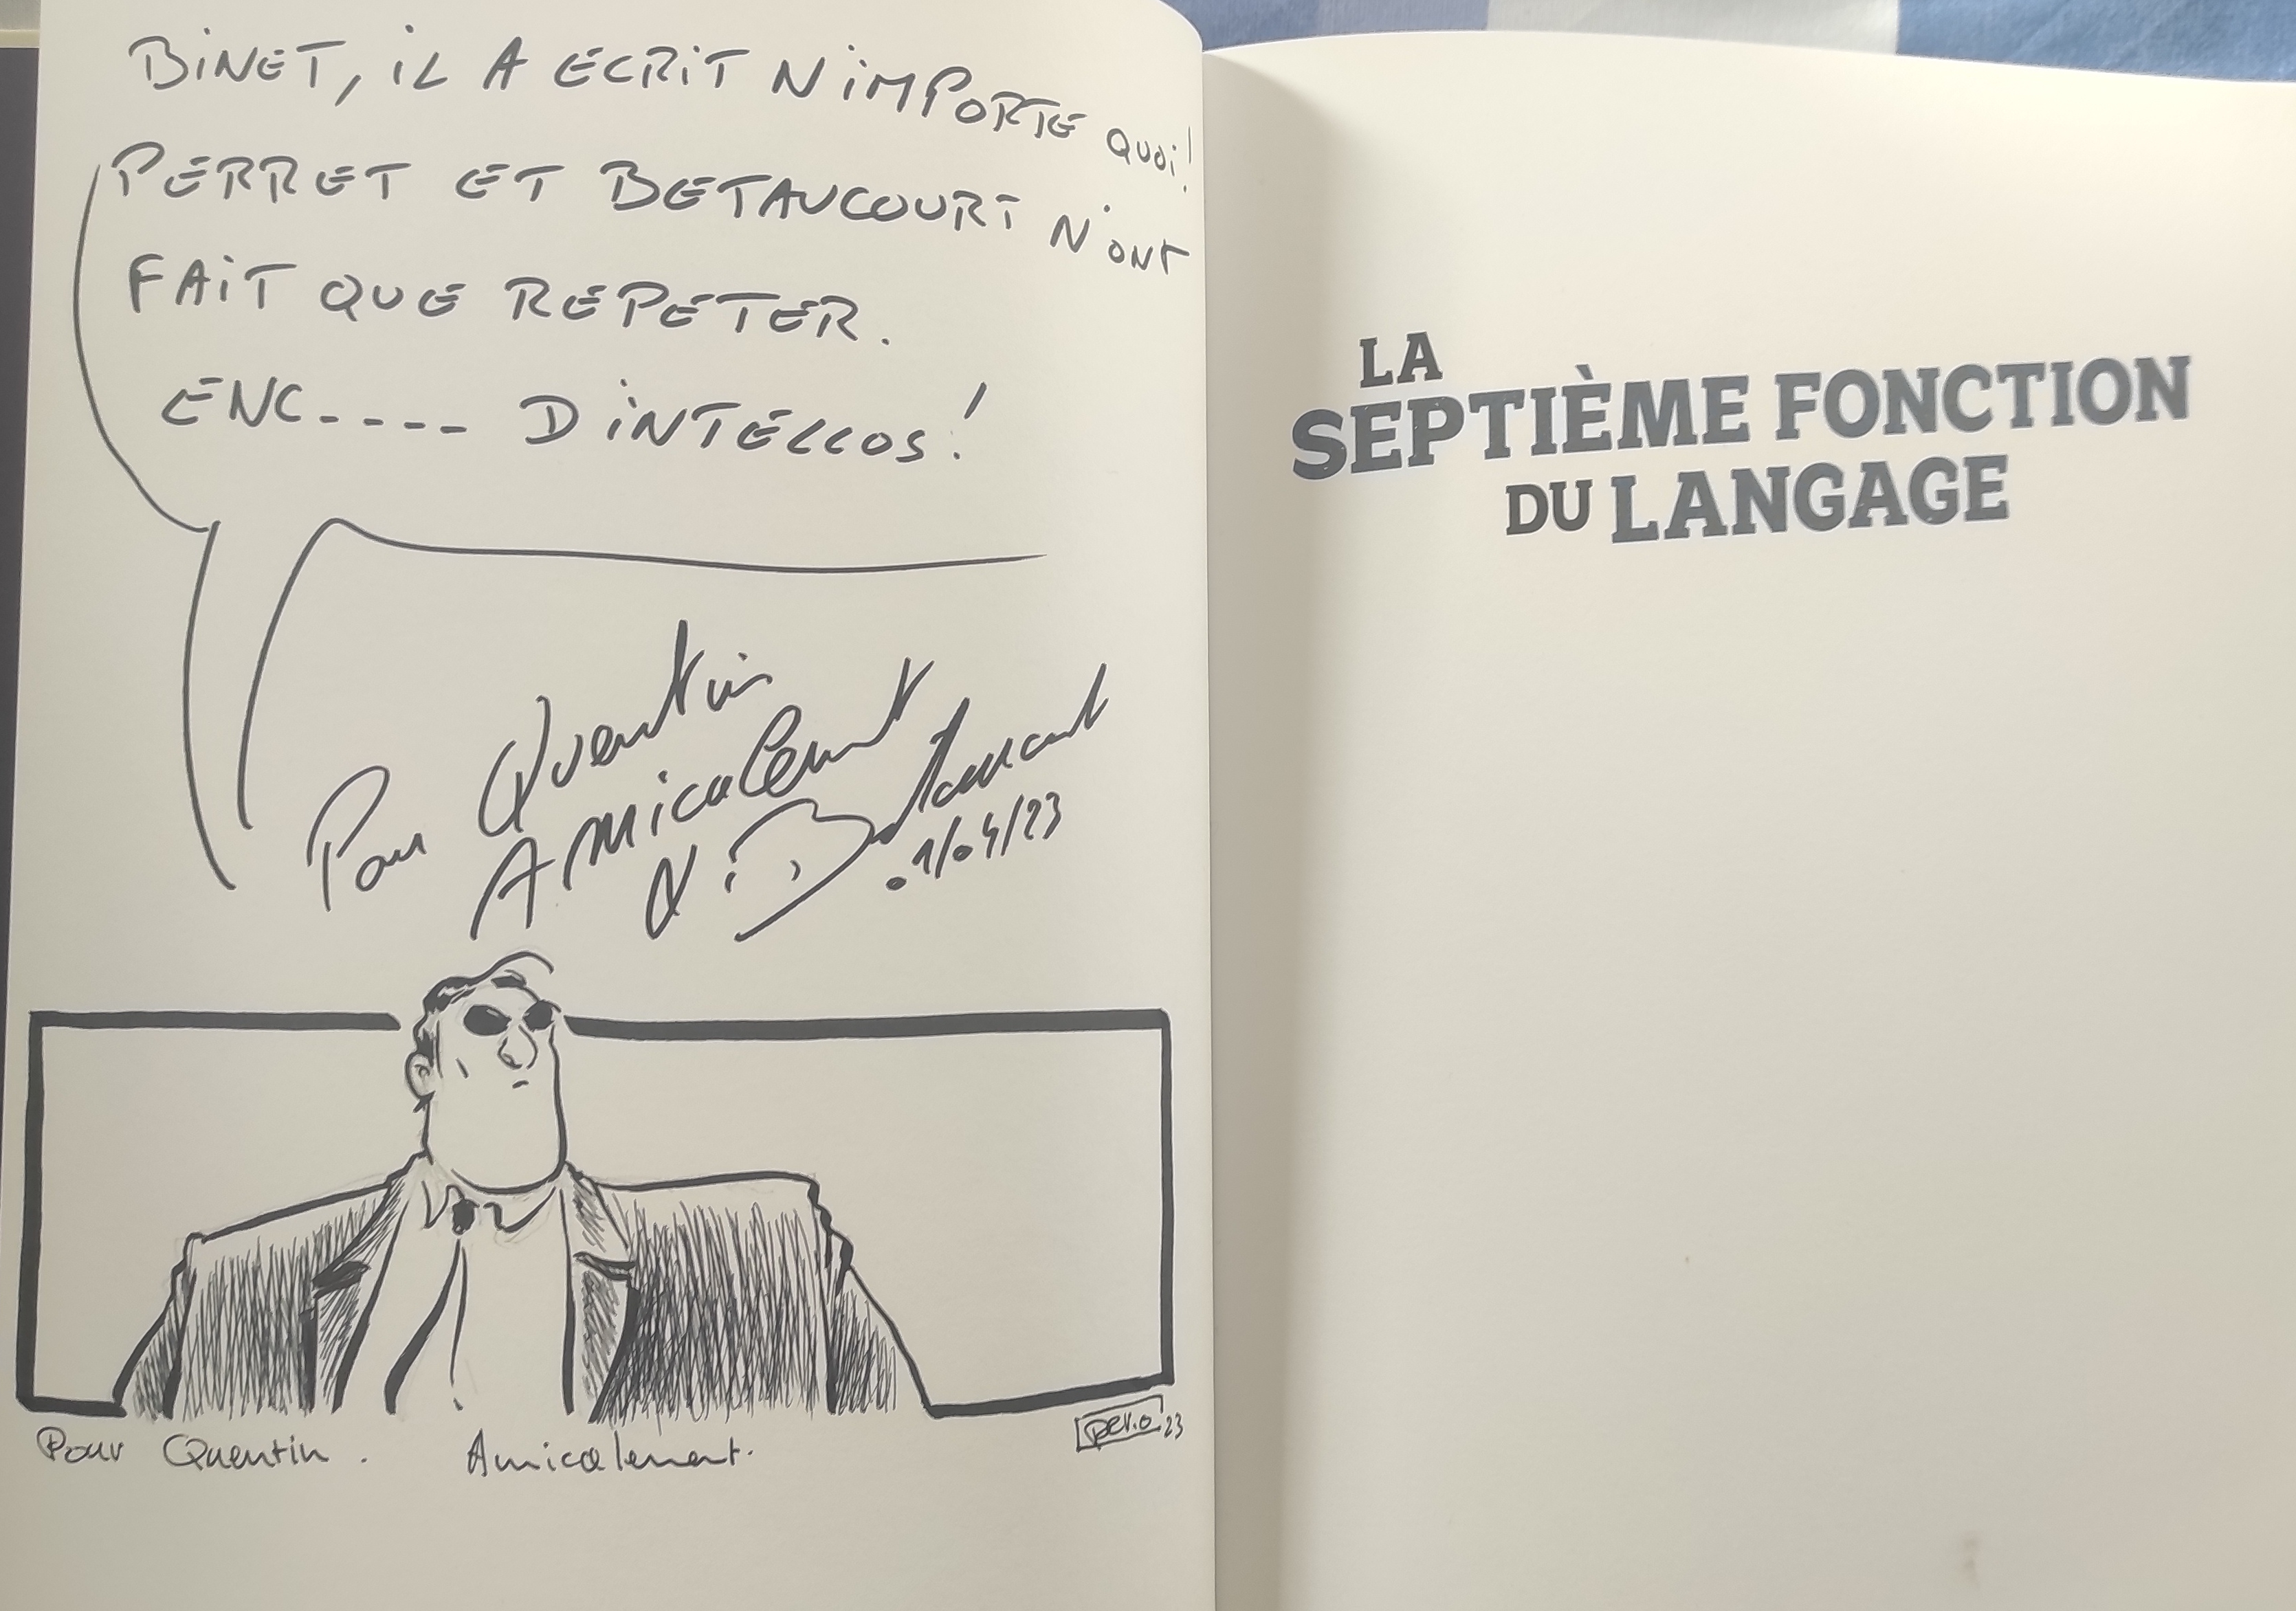 BINET, IL A ECRIT N'IMPORTE QUOI!
PERRET ET BETAUCOURT N'ONT
FAIT QUE REPETER.
ENC---- D'INTELLOS!
Pour Quentin
Amicalement
01/04/23
Pour Quentin. Amicalement.
23
LA
SEPTIÈME FONCTION
DU LANGAGE